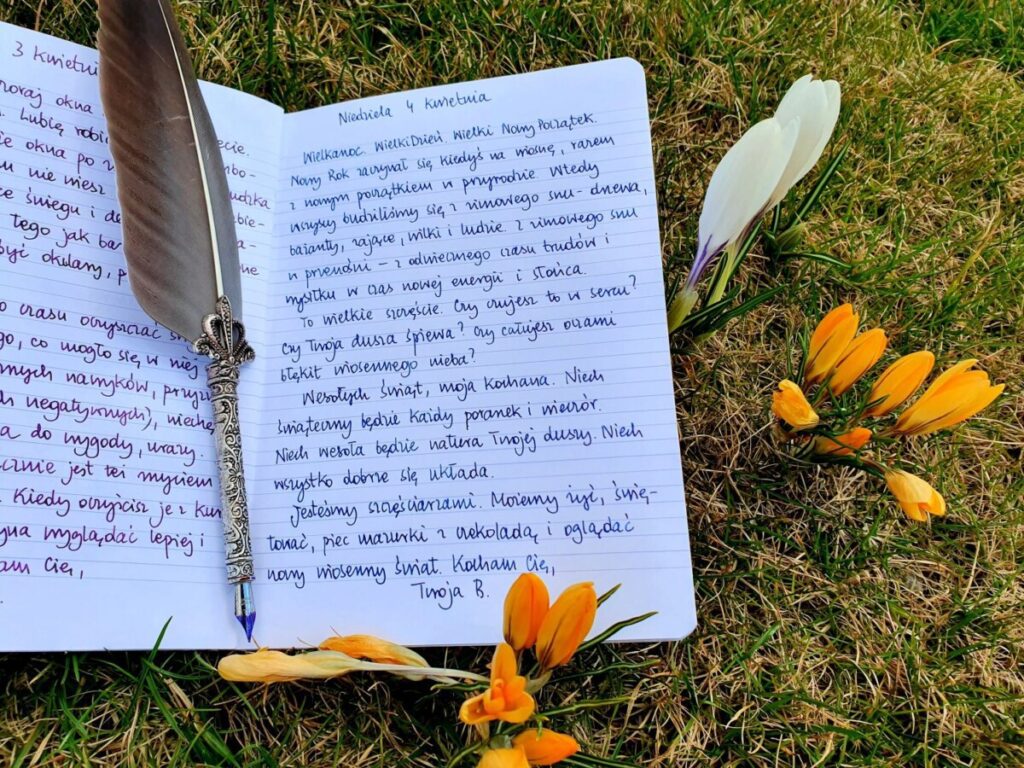 3 kwietni
okna
Lubię robi ecie.
że okna po mbo-
nie miesz udzka
śniegu i de obie-
Tego jak ba a-
być okulary, p ne
czasu oczyszczać
go, co mogło się w niej
nych nawyków, przyz
h negatywnych), niechę
a do wygody, urazy.
cznie jest też myciem
. Kiedy oczyścisz je z kur
wyglądać lepiej i
am Cię,
Niedziela 4 kwietnia
Wielkanoc. Wielki Dzień. Wielki Nowy Początek.
Nowy Rok zaczynał się kiedyś na wiosnę, razem
z nowym początkiem w przyrodzie. Wtedy
wszyscy budziliśmy się z zimowego snu - drzewa,
bażanty, zające, wilki i ludzie. Z zimowego snu
w przedni – z odwiecznego czasu trudów i
wysiłku w czas nowej energii i słońca.
To wielkie szczęście. Czy czujesz to w sercu?
Czy Twoja dusza śpiewa? Czy całujesz oczami
błękit wiosennego nieba?
Wesołych Świąt, moja Kochana. Niech
świąteczny będzie każdy poranek i wieczór.
Niech wesoła będzie natura Twojej duszy. Niech
wszystko dobrze się układa.
Jesteśmy szczęściarzami. Możemy żyć, świę-
tować, piec mazurki z czekoladą i oglądać
nowy wiosenny świat. Kocham Cię,
Twoja B.